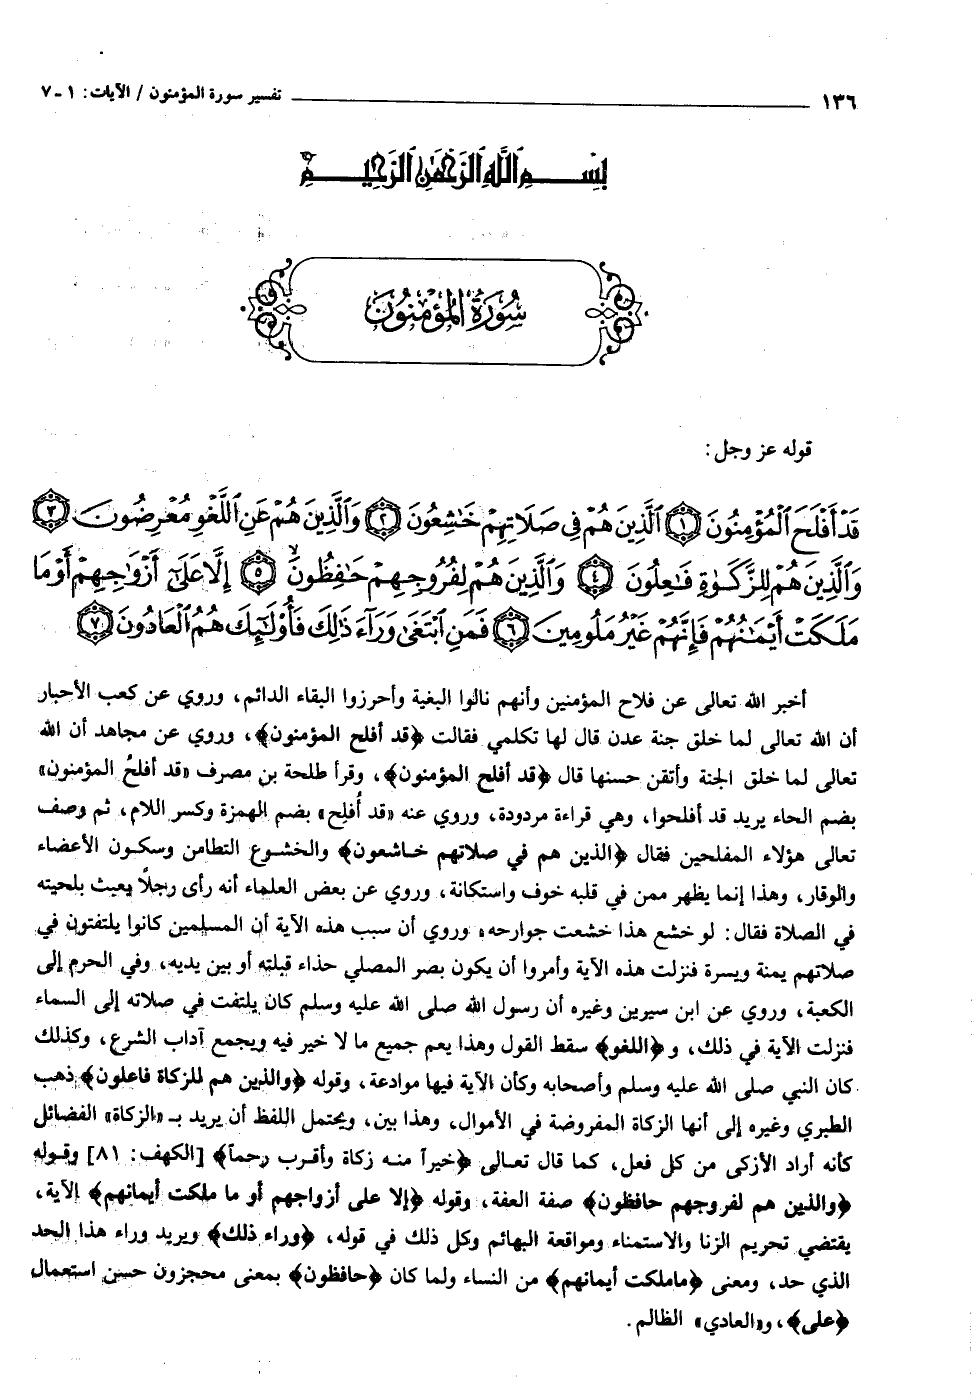 ١٣٦ تفسير سورة المؤمنون / الآيات: ١ ـ ٧
بِسْمِ اللَّهِ الرَّحْمَٰنِ الرَّحِيمِ
سُورَةُ الْمُؤْمِنُونَ
قوله عز وجل:
قَدْ أَفْلَحَ الْمُؤْمِنُونَ ١ الَّذِينَ هُمْ فِي صَلَاتِهِمْ خَاشِعُونَ ٢ وَالَّذِينَ هُمْ عَنِ اللَّغْوِ مُعْرِضُونَ ٣
وَالَّذِينَ هُمْ لِلزَّكَوٰةِ فَاعِلُونَ ٤ وَالَّذِينَ هُمْ لِفُرُوجِهِمْ حَافِظُونَ ٥ إِلَّا عَلَىٰٓ أَزْوَاجِهِمْ أَوْ مَا
مَلَكَتْ أَيْمَانُهُمْ فَإِنَّهُمْ غَيْرُ مَلُومِينَ ٦ فَمَنِ ابْتَغَىٰ وَرَآءَ ذَٰلِكَ فَأُولَٰٓئِكَ هُمُ الْعَادُونَ ٧
أخبر الله تعالى عن فلاح المؤمنين وأنهم نالوا البغية وأحرزوا البقاء الدائم، وروي عن كعب الأحبار
أن الله تعالى لما خلق جنة عدن قال لها تكلمي فقالت ﴿قد أفلح المؤمنون﴾، وروي عن مجاهد أن الله
تعالى لما خلق الجنة وأتقن حسنها قال ﴿قد أفلح المؤمنون﴾، وقرأ طلحة بن مصرف «قد أفلحُ المؤمنون»
بضم الحاء يريد قد أفلحوا، وهي قراءة مردودة، وروي عنه «قد أُفلِح» بضم الهمزة وكسر اللام، ثم وصف
تعالى هؤلاء المفلحين فقال ﴿الذين هم في صلاتهم خاشعون﴾ والخشوع التطامن وسكون الأعضاء
والوقار، وهذا إنما يظهر ممن في قلبه خوف واستكانة، وروي عن بعض العلماء أنه رأى رجلاً يعبث بلحيته
في الصلاة فقال: لو خشع هذا خشعت جوارحه، وروي أن سبب هذه الآية أن المسلمين كانوا يلتفتون في
صلاتهم يمنة ويسرة فنزلت هذه الآية وأمروا أن يكون بصر المصلي حذاء قبلته أو بين يديه، وفي الحرم إلى
الكعبة، وروي عن ابن سيرين وغيره أن رسول الله صلى الله عليه وسلم كان يلتفت في صلاته إلى السماء
فنزلت الآية في ذلك، و ﴿اللغو﴾ سقط القول وهذا يعم جميع ما لا خير فيه ويجمع آداب الشرع، وكذلك
كان النبي صلى الله عليه وسلم وأصحابه وكأن الآية فيها موادعة، وقوله ﴿والذين هم للزكاة فاعلون﴾ ذهب
الطبري وغيره إلى أنها الزكاة المفروضة في الأموال، وهذا بين، ويحتمل اللفظ أن يريد بـ «الزكاة» الفضائل
كأنه أراد الأزكى من كل فعل، كما قال تعالى ﴿خيراً منه زكاة وأقرب رحماً﴾ [الكهف: ٨١] وقوله
﴿والذين هم لفروجهم حافظون﴾ صفة العفة، وقوله ﴿إلا على أزواجهم أو ما ملكت أيمانهم﴾ الآية،
يقتضي تحريم الزنا والاستمناء ومواقعة البهائم وكل ذلك في قوله، ﴿وراء ذلك﴾ ويريد وراء هذا الحد
الذي حد، ومعنى ﴿ماملكت أيمانهم﴾ من النساء ولما كان ﴿حافظون﴾ بمعنى محجزون حسن استعمال
﴿على﴾، و«العادي» الظالم.